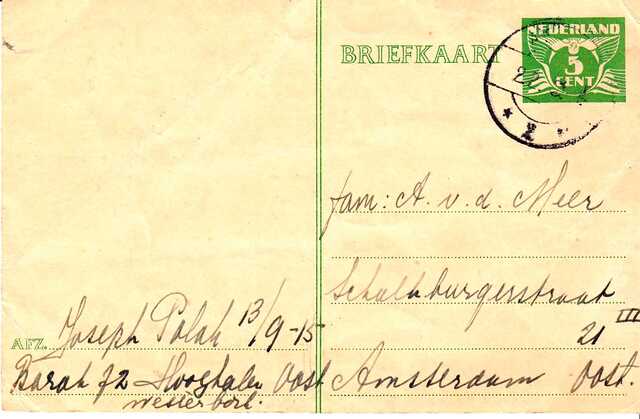 NEDERLAND
5
CENT
BRIEFKAART
fam: A. v. d. Meer
Schalkburgerstraat
21 III
Amsterdam Oost.
AFZ. Joseph Polak 13/9-15
Barak 72 Hooghalen Oost
Westerbork.